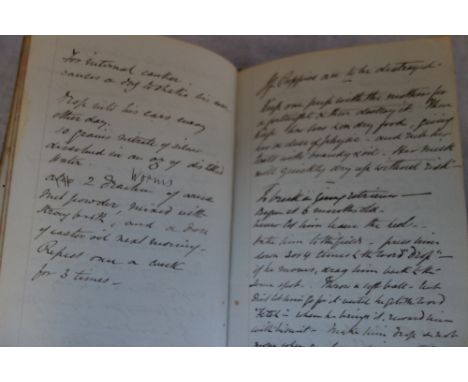 For internal canker
causes a dog to shake his ears
Drop into his ears every
other day.
10 grains nitrate of silver
dissolved in an oz of distilled
water.
Worms
2 Drachms of areca
nut powder mixed with
and a dose
of castor oil next morning.
Repeat once a week
for 3 times.
If Puppies are to be destroyed.
Keep one pup with the mother for
a fortnight & then destroy it. Then
keep her low on dry food, giving
her a dose of physic and rub her
well with brandy & oil. Her milk
will quickly dry up without risk.
To break a young retriever
Begin at 6 months old.
never let him leave the heel
take him to the field - press him
down 3 or 4 times & the word "Drop"
if he moves, drag him back to the
same spot. Throw a soft ball - but
dont let him go for it until he gets the word
"Fetch" - when he brings it, reward him
with biscuit - Make him drop & not